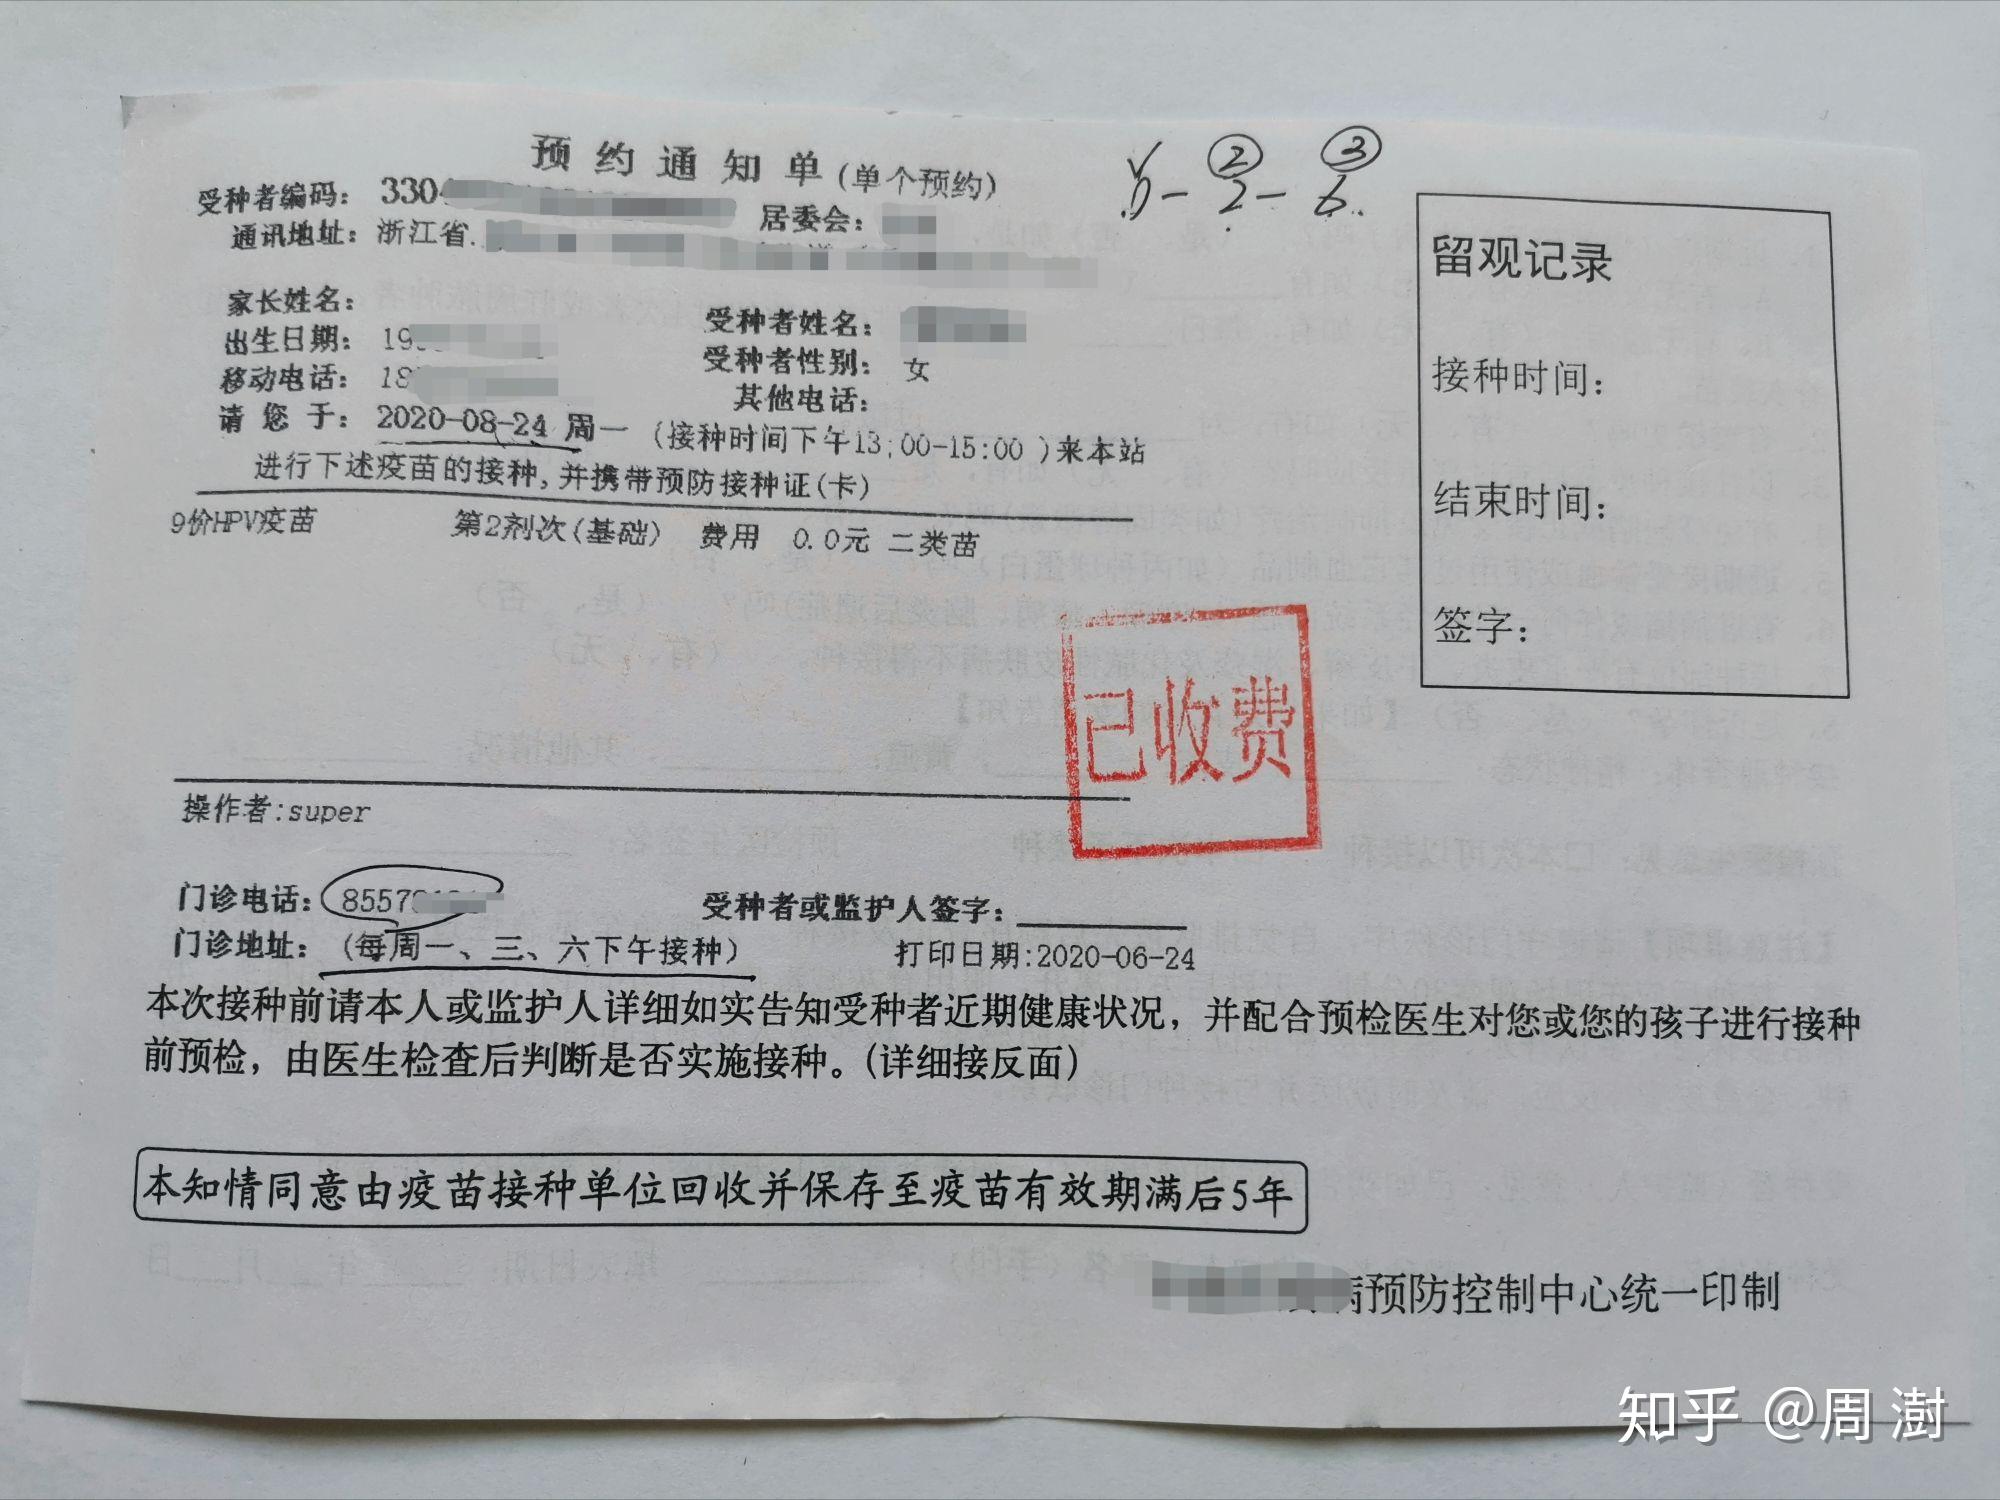 预约通知单(单个预约)
0-2-6
② ③
受种者编码: 330
居委会:
通讯地址: 浙江省
家长姓名:
受种者姓名:
出生日期: 19
受种者性别: 女
移动电话: 18
其他电话:
请您于: 2020-08-24 周一 (接种时间下午13:00-15:00 )来本站
进行下述疫苗的接种,并携带预防接种证(卡)
9价HPV疫苗 第2剂次(基础) 费用 0.0元 二类苗
已收费
操作者:super
门诊电话: 8557
受种者或监护人签字:
门诊地址: (每周一、三、六下午接种)
打印日期:2020-06-24
本次接种前请本人或监护人详细如实告知受种者近期健康状况，并配合预检医生对您或您的孩子进行接种
前预检，由医生检查后判断是否实施接种。(详细接反面)
本知情同意由疫苗接种单位回收并保存至疫苗有效期满后5年
病预防控制中心统一印制
留观记录
接种时间:
结束时间:
签字:
知乎 @周澍